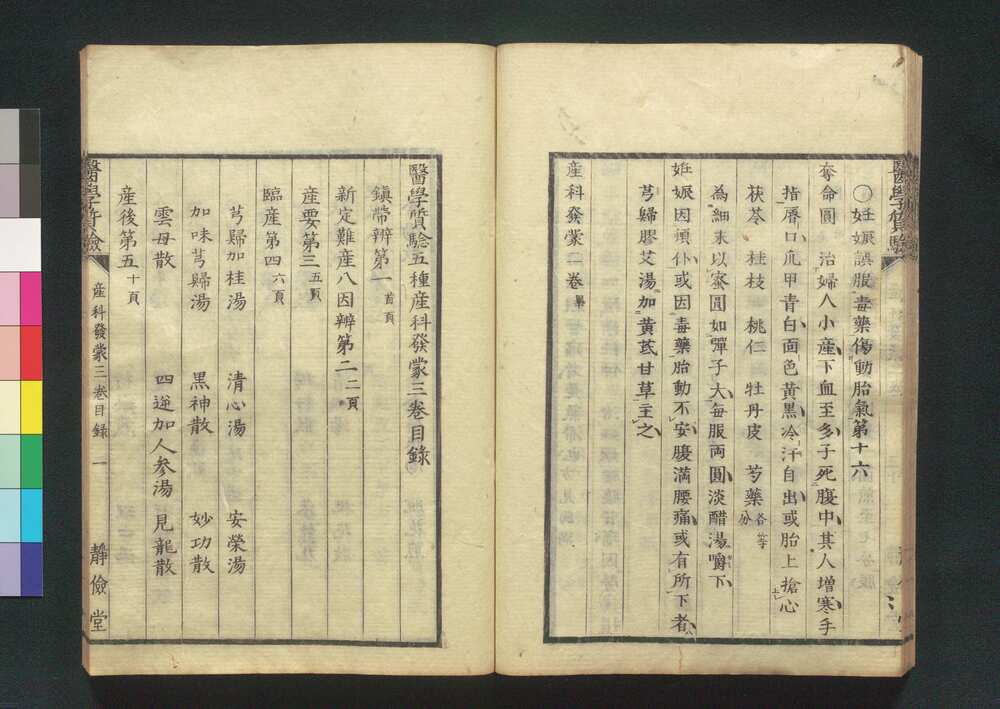 醫學質驗
〇妊娠誤服毒藥傷動胎氣第十六
奪命圓　治婦人小產下血至多子死腹中其人增寒手
指脣口爪甲青白面色黃黑冷汗自出或胎上搶心
茯苓　桂枝　桃仁　牡丹皮　芍藥各等分
為細末以蜜圓如彈子大每服兩圓淡醋湯嚼下
妊娠因頓仆或因毒藥胎動不安腹滿腰痛或有所下者
芎歸膠艾湯加黃芪甘草主之
産科發蒙二卷畢
醫學質驗五種産科發蒙三卷目錄
鎮帶辨第一 首頁
新定難産八因辨第二 二頁
産要第三 五頁
臨産第四 六頁
芎歸加桂湯　清心湯　安榮湯
加味芎歸湯　黑神散　妙功散
雲母散　四逆加人參湯　見龍散
産後第五 十頁
醫學質驗　産科發蒙三卷目錄　一　靜儉堂